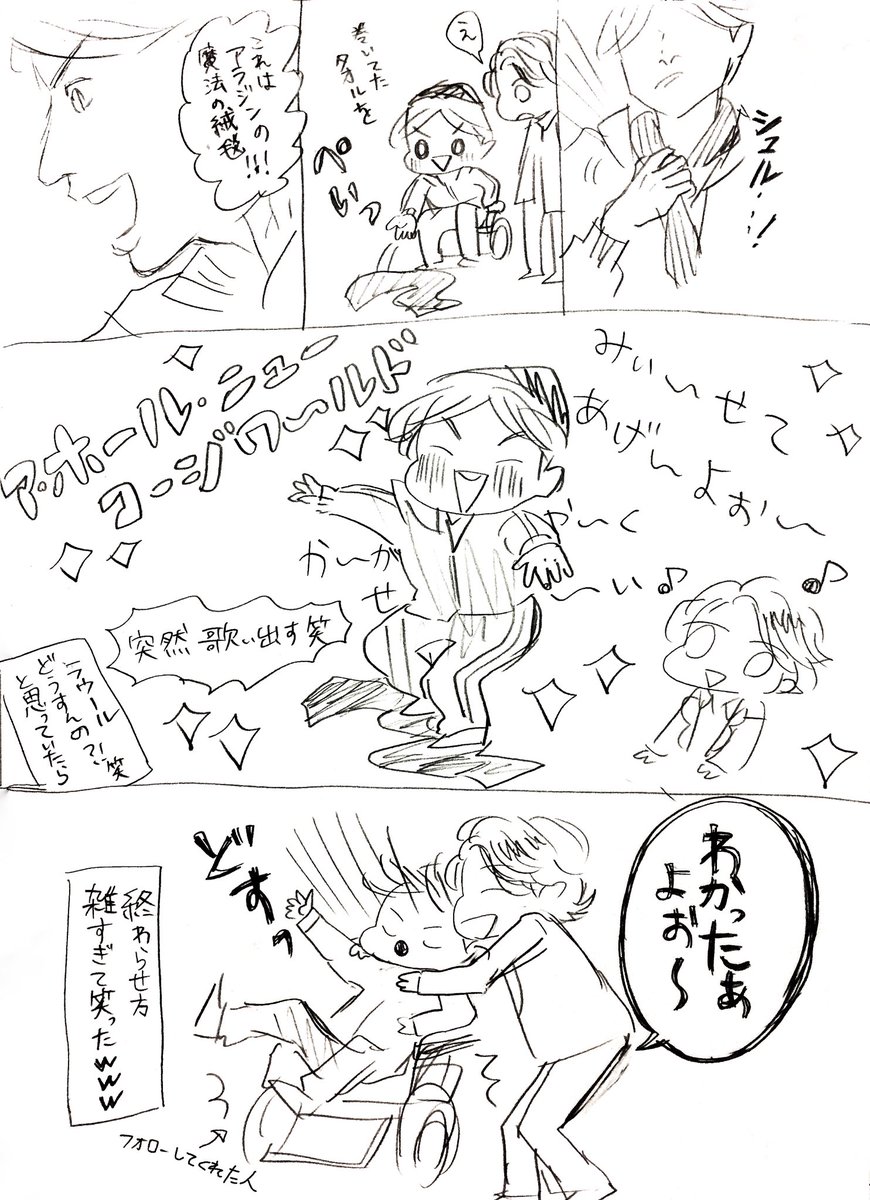 シュル…!
え
巻いてた
タオルを
ぺいっ
これは
アラジンの
魔法の絨毯!!!
みぃ〜いせて
あげんよぉ〜
やーく
〜い♪
かーがせ
ア・ホール・ニュー
コージワールド
突然歌い出す笑
ラウール
どうすんの?!笑
と思っていたら
わかったぁ
よぉ〜
どすっ
終わらせ方
雑すぎて笑ったwww
フォローしてくれた人